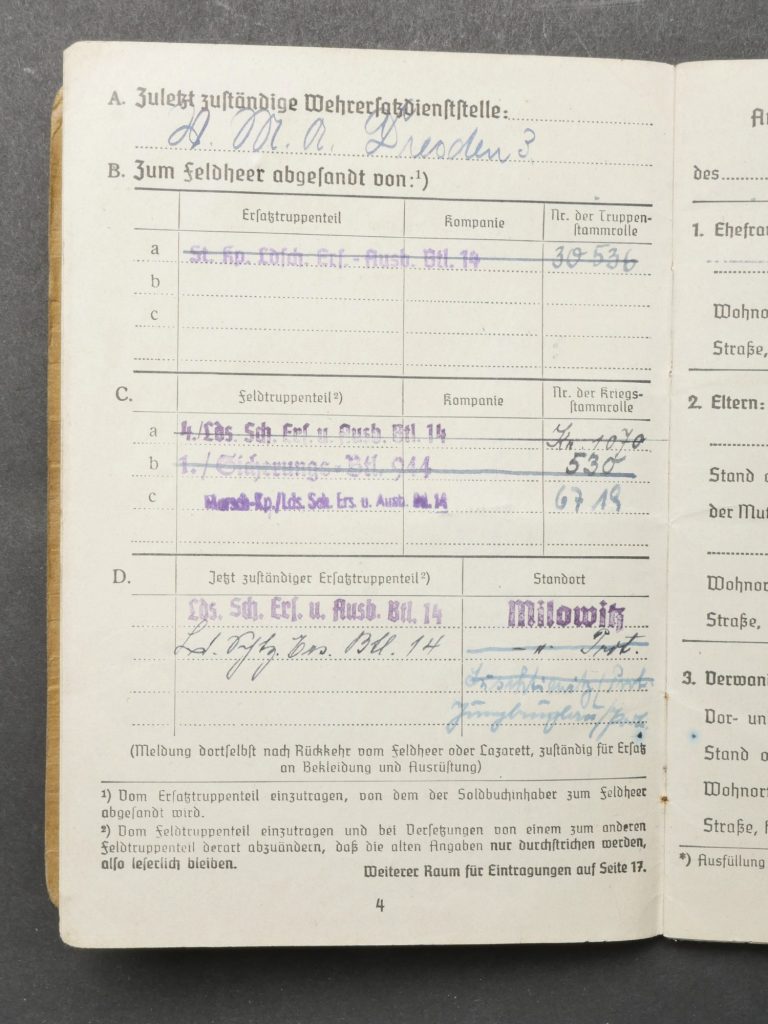 A. Zuletzt zuständige Wehrersatzdienststelle:
W. M. A. Dresden 3.
B. Zum Feldheer abgesandt von:¹)
Ersatztruppenteil Kompanie Nr. der Truppen-
stammrolle
a St. Kp. Ldsch. Ers.-Ausb. Btl. 14 30 536
b
c
C. Feldtruppenteil²) Kompanie Nr. der Kriegs-
stammrolle
a 4./Lds. Sch. Ers. u. Ausb. Btl. 14 Kr. 1070
b 1./Sicherungs-Btl. 944 530
c Marsch-Kp./Lds. Sch. Ers. u. Ausb. Btl. 14 67 19
D. Jetzt zuständiger Ersatztruppenteil²) Standort
Lds. Sch. Ers. u. Ausb. Btl. 14 Milowitz
Ld. Schtz. Ers. Btl. 14 — " — Prot.
Jungbunzlau
(Meldung dortselbst nach Rückkehr vom Feldheer oder Lazarett, zuständig für Ersatz
an Bekleidung und Ausrüstung)
¹) Vom Ersatztruppenteil einzutragen, von dem der Soldbuchinhaber zum Feldheer
abgesandt wird.
²) Vom Feldtruppenteil einzutragen und bei Versetzungen von einem zum anderen
Feldtruppenteil derart abzuändern, daß die alten Angaben nur durchstrichen werden,
also leserlich bleiben.
Weiterer Raum für Eintragungen auf Seite 17.
4
des
1. Ehefra
Wohno
Straße,
2. Eltern:
Stand o
der Mut
Wohnor
Straße,
3. Verwan
Vor- un
Stand o
Wohnor
Straße, H
*) Ausfüllung